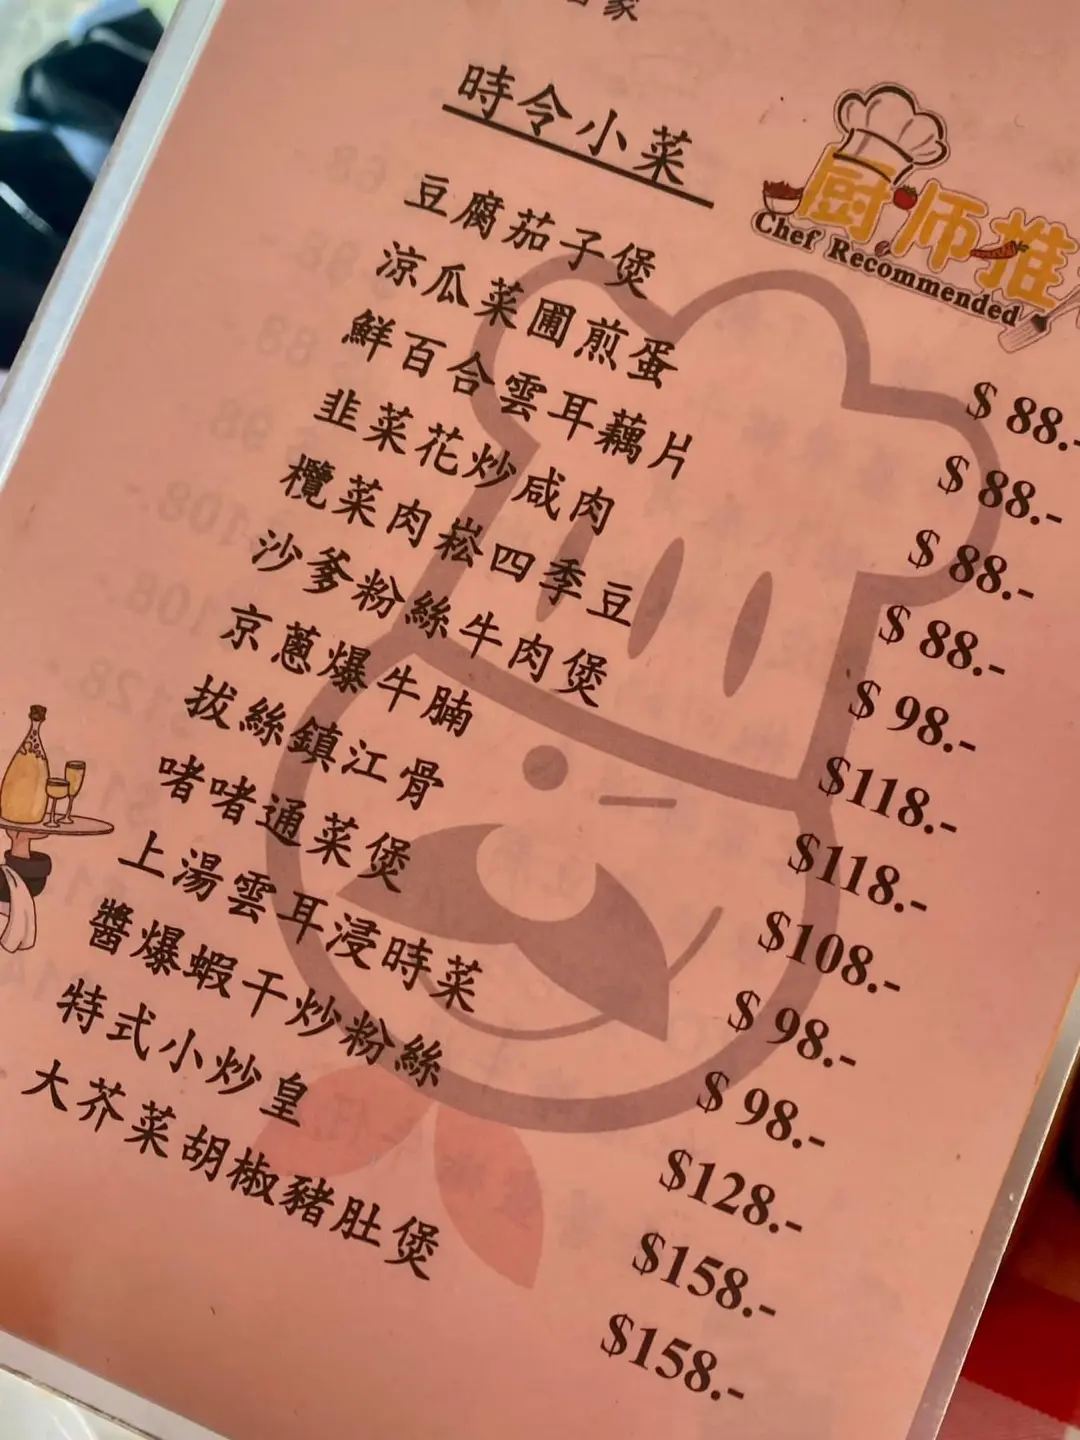 家
時令小菜
厨师推
Chef Recommended
豆腐茄子煲 $ 88.-
涼瓜菜圃煎蛋 $ 88.-
鮮百合雲耳藕片 $ 88.-
韭菜花炒咸肉 $ 88.-
欖菜肉崧四季豆 $ 98.-
沙爹粉絲牛肉煲 $118.-
京蔥爆牛腩 $118.-
拔絲鎮江骨 $108.-
啫啫通菜煲 $ 98.-
上湯雲耳浸時菜 $ 98.-
醬爆蝦干炒粉絲 $128.-
特式小炒皇 $158.-
大芥菜胡椒豬肚煲 $158.-